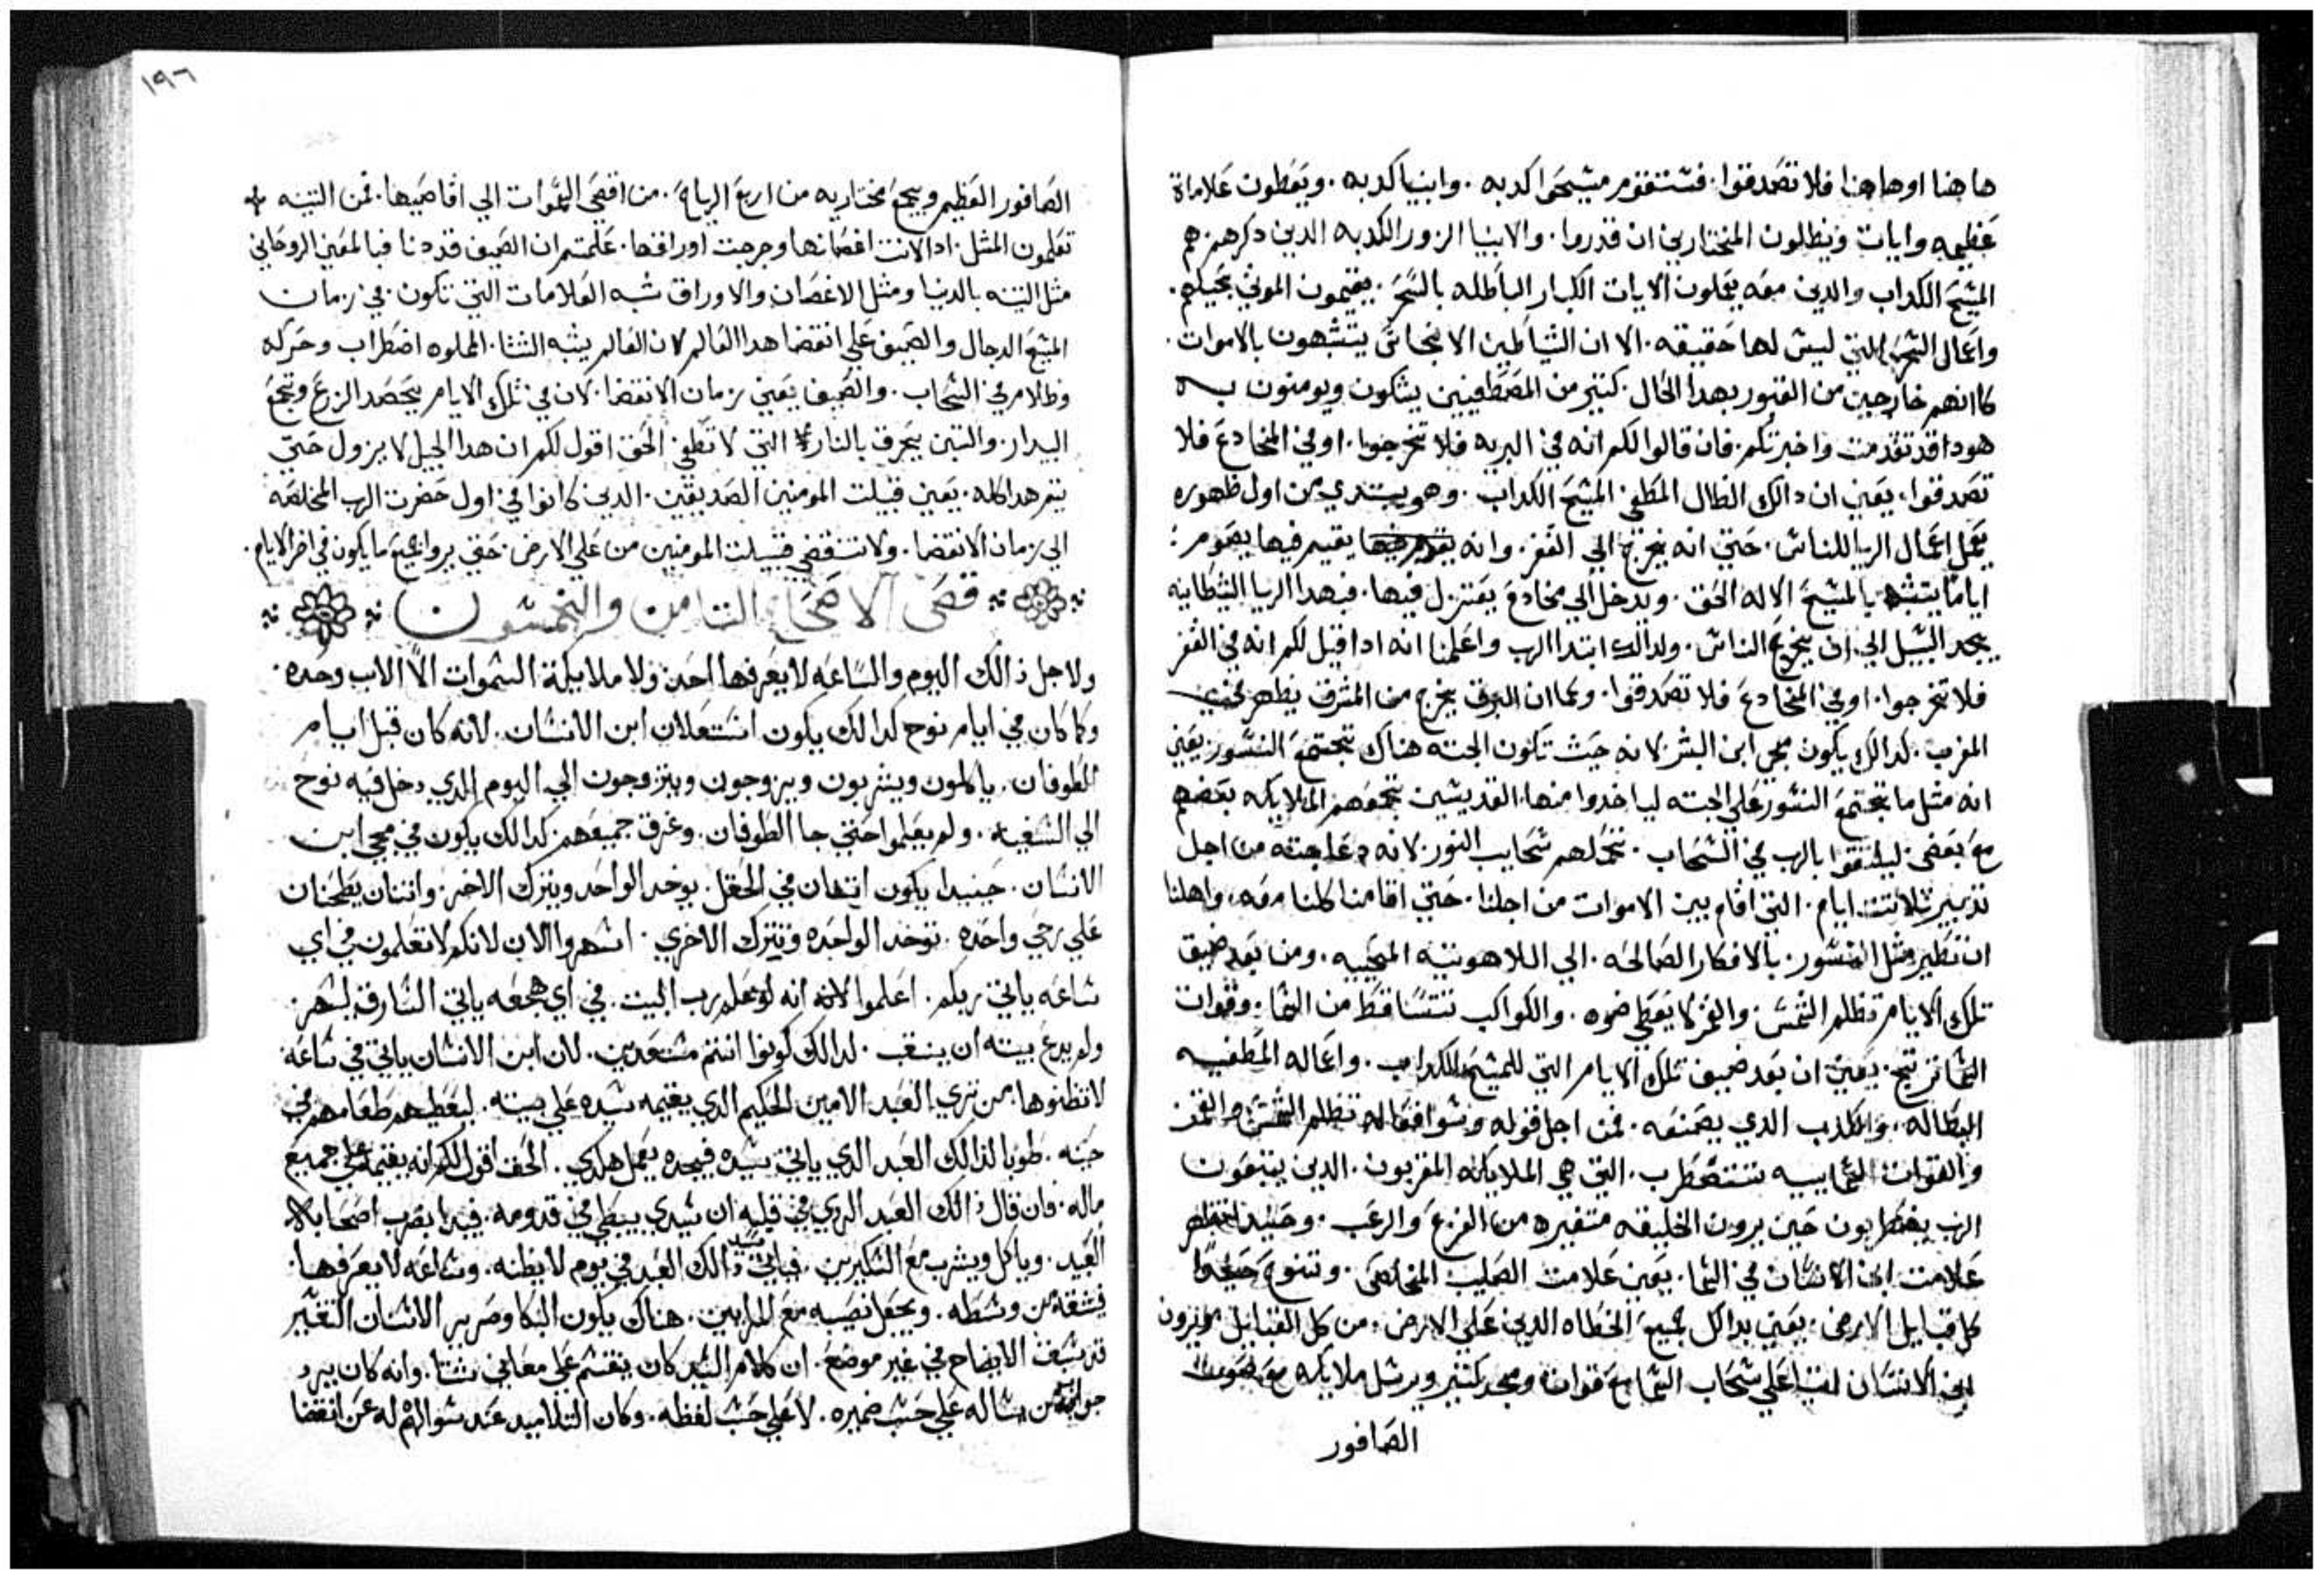 ها هنا او ها هنا فلا تصدقوا. فستقوم مسيحوا كدبه. وانبيا كدبه. ويعطون علاماة
عظيمه وايات ويظلون المختارين ان قدروا. والانبيا الزور الكدبه الدين دكرهم هم
المسيح الكداب والدين معه يعملون الايات الكبار الباطله بالسحر. يقيمون الموتي بحيلهم.
واعمال السحر التي ليس لها حقيقه. الا ان الشياطين الانجاس يتشبهون بالاموات.
كانهم خارجين من القبور بهدا الحال. كتير من المصطفيين يشكون ويومنون به
هودا قد تقدمت واخبرتكم. فان قالوا لكم انه في البريه فلا تخرجوا. او في المخادع فلا
تصدقوا. يعني ان دالك الظال المطغي المسيح الكداب. وهو يبتدي من اول ظهوره
يعمل اعمال الريا للناس. حتي انه يخرج الي القفر. وانه يقيم فيها يصوم
اياما يتشبه بالمسيح الاله الحق. ويدخل الي مخادع يعتزل فيها. فبهدا الريا الشيطانيه
يجد السبيل الي ان يخرج الناس. ولدالك ابتدا الرب واعلمنا انه ادا قيل لكم انه في القفر
فلا تخرجوا. او في المخادع فلا تصدقوا. وكما ان البرق يخرج من المشرق يظهر في
المغرب. كدالك يكون مجي ابن البشر لانه حيث تكون الجته هناك تجتمع النسور. يعني
انه مثل ما تجتمع النسور علي الجته لياخدوا منها. القديسين تجمعهم الملايكه بعضهم
مع بعض. ليلتقوا بالرب في السحاب. تحملهم سحايب النور. لانه دعا جتته من اجل
تدبير ثلاتت ايام. التي اقام بين الاموات من اجلنا. حتي اقامنا كلنا معه. واهلنا
ان نطير مثل النسور. بالافكار الصالحه. الي اللاهوتيه المحييه. ومن بعد ضيق
تلك الايام تظلم الشمس. والقمر لا يعطي ضوه. والكواكب تتساقط من السما. وقوات
السما ترتج. يعني ان بعد ضيق تلك الايام التي للمسيح الكداب. واعماله المطغيه
البطاله. والكدب الدي يصنعه. فمن اجل قوله وسو افعاله تظلم الشمس والقمر
والقوات السماييه تتضطرب. التي هي الملايكه المقربون. الدين يتبعون
الرب يضطربون حين يرون الخليقه متغيره من الفزع والرعب. وحينيد تظهر
علامت ابن الانسان في السما. يعني علامت الصليب المخلص. وتنوح حينيدا
كل قبايل الارض. يعني بدا كل جميع الخطاه الدين علي الارض. من كل القبايل ويرون
ابن الانسان اتيا علي سحاب السما مع قوات ومجد كتير ويرسل ملايكه مع صوت
الصافور
١٩٦
الصافور العظيم ويجمع مختاريه من اربع الرياح. من اقصي السموات الي اقاصيها. فمن التينه
تعلمون المثل. ادا لانت اغصانها وخرجت اوراقها. علمتم ان الصيف قد دنا فبالمعني الروحاني
مثل التينه بالدنيا ومثل الاغصان والاوراق شبه العلامات التي تكون. في زمان
المسيح الدجال والصيف علي انقضا هدا العالم لان العالم يشبه الشتا. المملوه اضطراب وحركه
وظلام في السحاب. والصيف يعني زمان الانقضا. لان في تلك الايام يحصد الزرع وتجمع
البيدار. والتبن يحرق بالنار التي لا تطفي الحق اقول لكم ان هدا الجيل لا يزول حتي
يتم هدا كله. يعني قبيلت المومنين الصديقين. الدين كانوا في اول حضرت الرب المخلصه
الي زمان الانقضا. ولا تنقضي قبيلت المومنين من علي الارض. حتي يروا جميع ما يكون في اخر الايام.
فصى الاصحاح التامن والخمسون
ولاجل ذالك اليوم والساعه لا يعرفها احد ولا ملايكة السموات الا الاب وحده.
وكما كان في ايام نوح كدالك يكون استعلان ابن الانسان. لانه كان قبل ايام
الطوفان. ياكلون ويشربون ويزوجون ويتزوجون الي اليوم الدي دخل فيه نوح
الي السفينه. ولم يعلموا حتي جا الطوفان. وغرق جميعهم. كدالك يكون في مجي ابن
الانسان. حينيدا يكون اتنان في الحقل. يوخد الواحد ويترك الاخر. واتنان يطحنان
علي رحي واحده. توخد الواحده وتترك الاخري. اسهروا الان لانكم لا تعلمون في اي
ساعه ياتي ربكم. اعلموا انه لو علم رب البيت. في اي هجعه ياتي السارق لسهر.
ولم يدع بيته ان ينقب. لدالك كونوا انتم مستعدين. لان ابن الانسان ياتي في ساعة
لا تظنوها. من تري العبد الامين الحكيم الدي يقيمه سيده علي بيته. ليعطيهم طعامهم في
حينه. طوبا لدالك العبد الدي ياتي سيده فيجده يعمل هكدي. الحق اقول لكم انه يقيمه علي جميع
ماله. فان قال ذالك العبد الردي في قلبه ان سيدي يبطي في قدومه. فيبدا يضرب اصحابه
العبيد. وياكل ويشرب مع السكيرين. فياتي سيد ذالك العبد في يوم لا يظنه. وساعه لا يعرفها.
فيشقه من وسطه. ويجعل نصيبه مع المرايين. هناك يكون البكا وصرير الاسنان التفسير
قد سبق الايضاح في غير موضع. ان كلام السيد كان ينقسم علي معاني شتا. وانه كان يرد
جواب من يساله علي حسب ضميره. لا علي حسب لفظه. وكان التلاميد عند سوالهم له عن انقضا